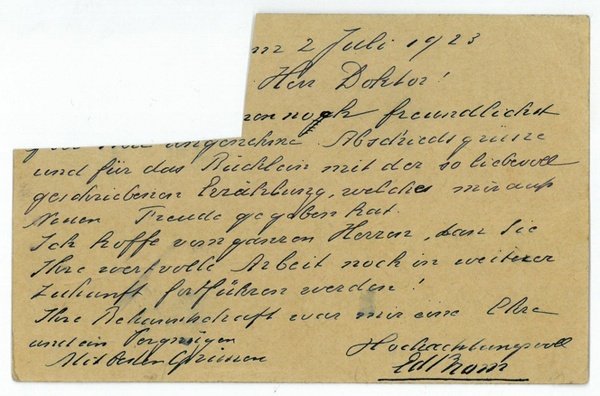 2 Juli 1923
Herr Doktor!
noch freundlichst
angenehme Abschiedsgrüsse
und für das Büchlein mit der so liebevoll
geschriebenen Erzählung, welches mir aufs
Neuen Freude gegeben hat.
Ich hoffe vom ganzen Herzen, dass Sie
Ihre wertvolle Arbeit noch in weiterer
Zukunft fortführen werden!
Ihre Bekanntschaft war mir eine Ehre
und ein Vergnügen
Mit besten Grüssen Hochachtungsvoll